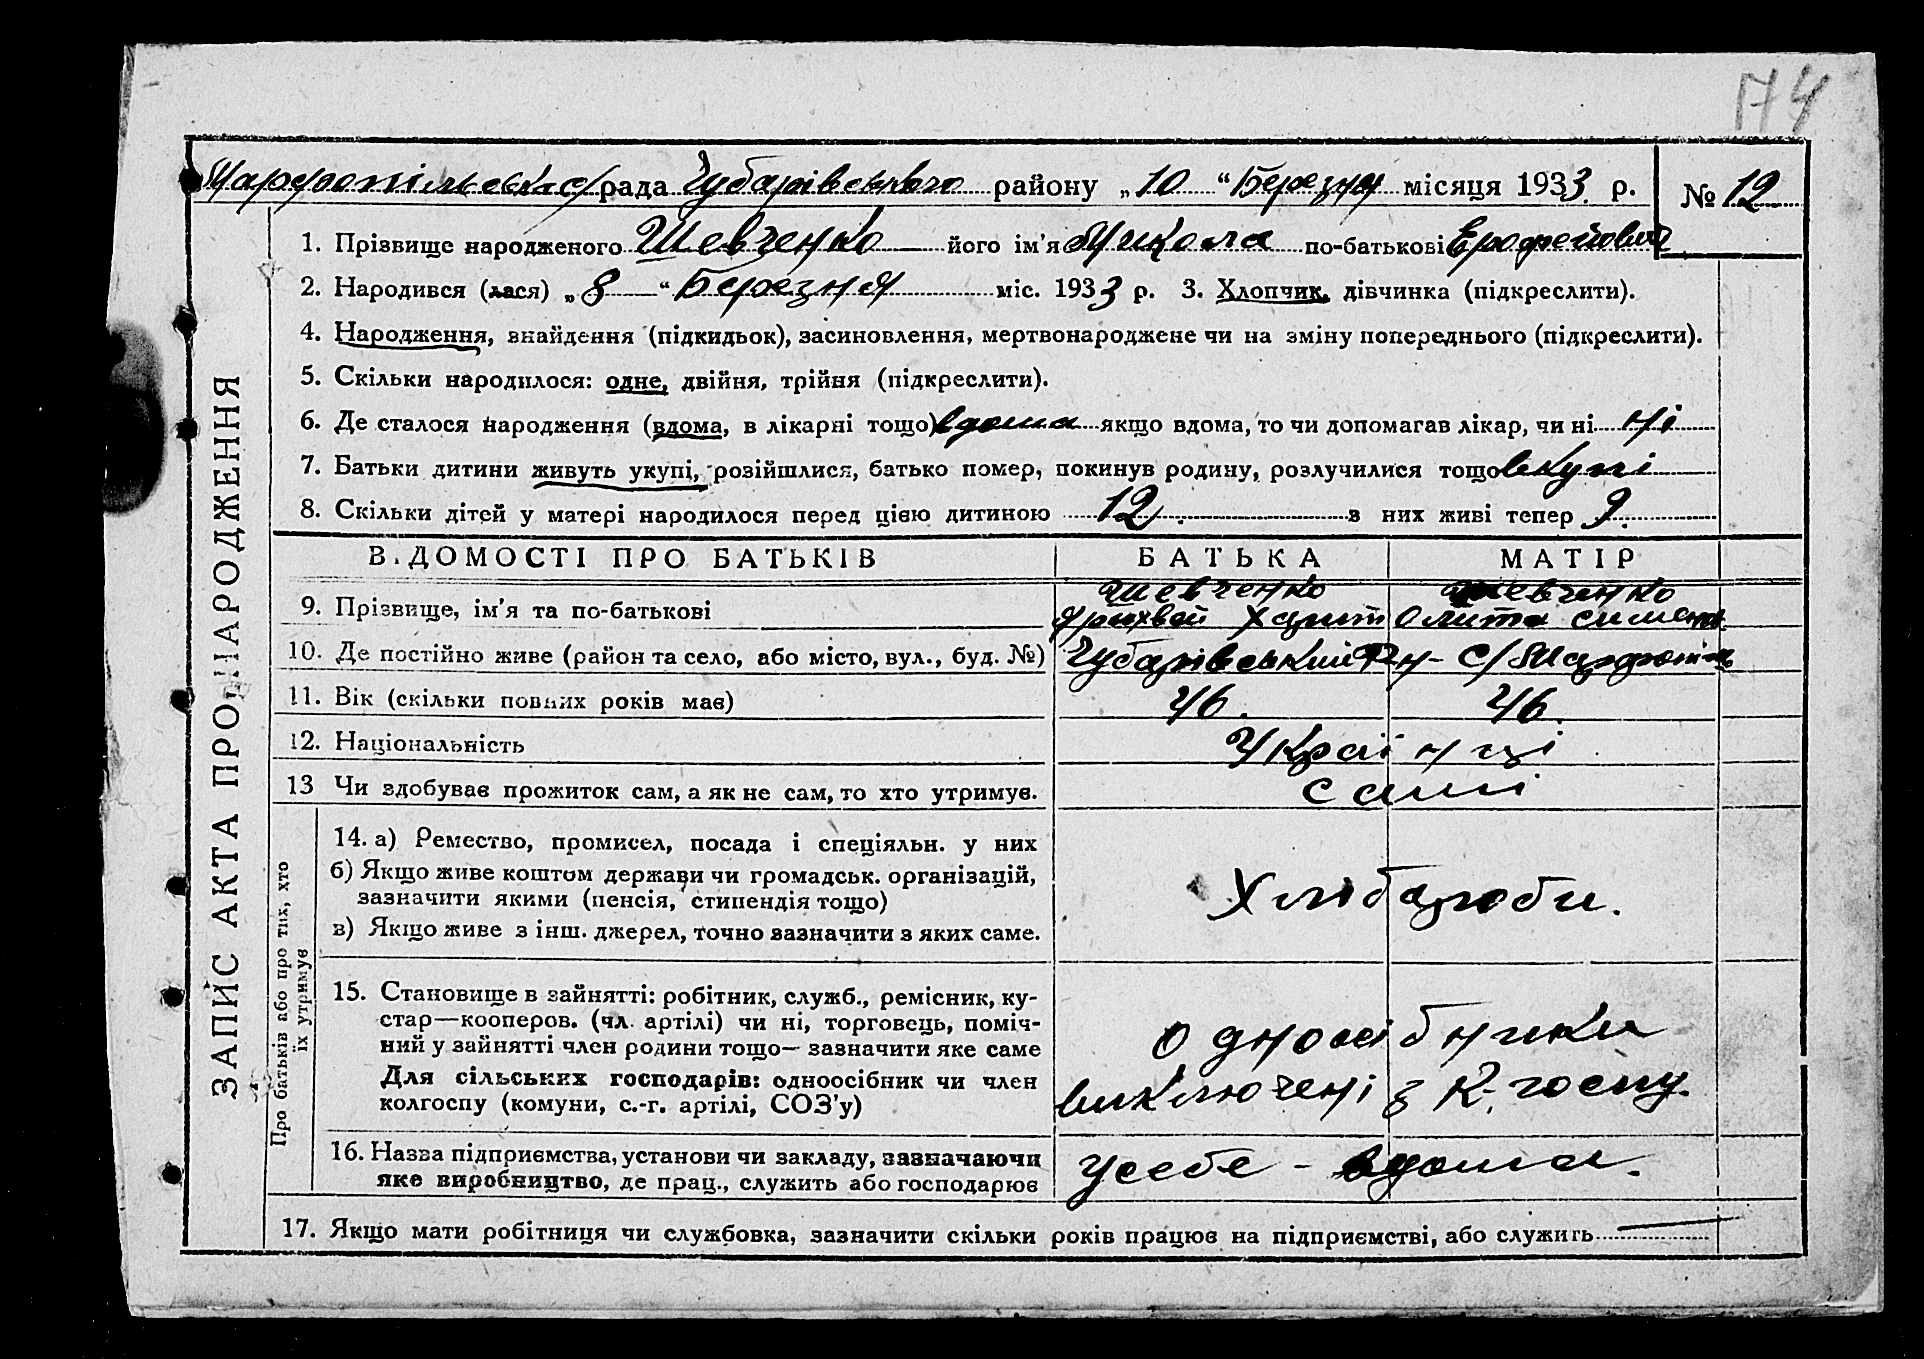 174
Марфопільська с/рада Чубарівського району „10“ Березня місяця 1933 р. № 12
1. Прізвище народженого Шевченко його ім'я Микола по-батькові Єрофейович
2. Народився (лася) „8“ Березня міс. 1933 р. 3. Хлопчик, дівчинка (підкреслити).
4. Народження, знайдення (підкидьок), засиновлення, мертвонароджене чи на зміну попереднього (підкреслити).
5. Скільки народилося: одне, двійня, трійня (підкреслити).
6. Де сталося народження (вдома, в лікарні тощо) вдома якщо вдома, то чи допомагав лікар, чи ні ні
7. Батьки дитини живуть укупі, розійшлися, батько помер, покинув родину, розлучилися тощо вкупі
8. Скільки дітей у матері народилося перед цією дитиною 12. з них живі тепер 9.
ЗАПИС АКТА ПРО НАРОДЖЕННЯ
ВІДОМОСТІ ПРО БАТЬКІВ БАТЬКА МАТІР
Шевченко Шевченко
9. Прізвище, ім'я та по-батькові
10. Де постійно живе (район та село, або місто, вул., буд. №) Чубарівський Р-н - с/Марфопіль
11. Вік (скільки повних років має) 46. 46.
12. Національність Українці
13 Чи здобував прожиток сам, а як не сам, то хто утримує. самі
Про батьків або про тих, хто
їх утримує
14. а) Ремество, промисел, посада і спеціяльн. у них
б) Якщо живе коштом держави чи громадськ. організацій,
зазначити якими (пенсія, стипендія тощо)
в) Якщо живе з інш. джерел, точно зазначити з яких саме.
Хлібороби.
15. Становище в зайнятті: робітник, служб., ремісник, ку-
стар—кооперов. (чл. артілі) чи ні, торговець, поміч-
ний у зайнятті член родини тощо— зазначити яке саме
Для сільських господарів: одноосібник чи член
колгоспу (комуни, с.-г. артілі, СОЗ'у)
одноосібники
виключені з к-госпу.
16. Назва підприємства, установи чи закладу, зазначаючи
яке виробництво, де прац., служить або господарює
у себе - вдома.
17. Якщо мати робітниця чи службовка, зазначити скільки років працює на підприємстві, або служить